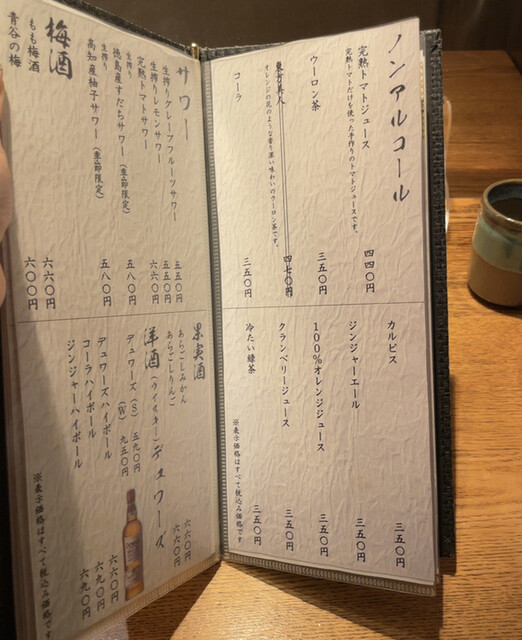 ノンアルコール
完熟トマトジュース 四四〇円
完熟トマトだけを使った手作りのトマトジュースです。
ウーロン茶 三五〇円
東方美人 四七〇円
オレンジの花のような香り濃い味わいのウーロン茶です。
コーラ 三五〇円
カルピス 三五〇円
ジンジャーエール 三五〇円
100%オレンジジュース 三五〇円
クランベリージュース 三五〇円
冷たい緑茶 三五〇円
※表示価格はすべて税込み価格です
サワー
生搾りグレープフルーツサワー 五五〇円
生搾りレモンサワー 五五〇円
完熟トマトサワー 六六〇円
生搾り
徳島産すだちサワー（季節限定） 五八〇円
生搾り
高知産柚子サワー（季節限定） 五八〇円
梅酒
もも梅酒 六六〇円
青谷の梅 六〇〇円
果実酒
あらごしみかん 六六〇円
あらごしりんご 六六〇円
洋酒（ウイスキー）デュワーズ
デュワーズ（S） 五九〇円
（W） 九五〇円
デュワーズハイボール 六六〇円
コーラハイボール 六九〇円
ジンジャーハイボール 六九〇円
※表示価格はすべて税込み価格です